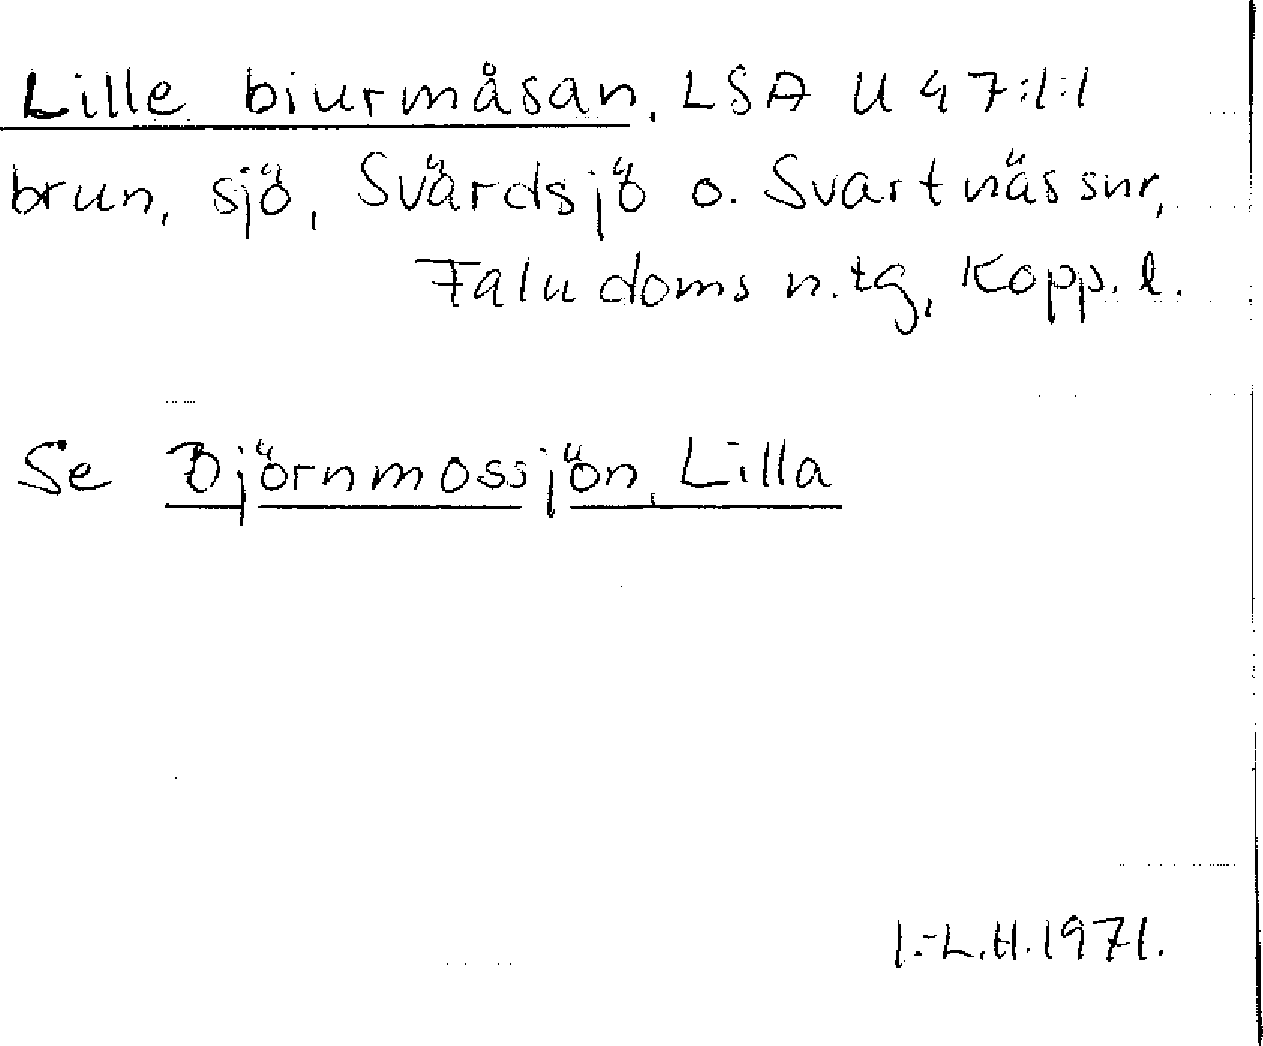 Lille biurmåsan, LSA U 47:1:1
brun, sjö, Svärdsjö o. Svartnäs snr,
Falu doms n. tg, Kopp. l.
Se Björnmossjön, Lilla
I.-L.H. 1971.